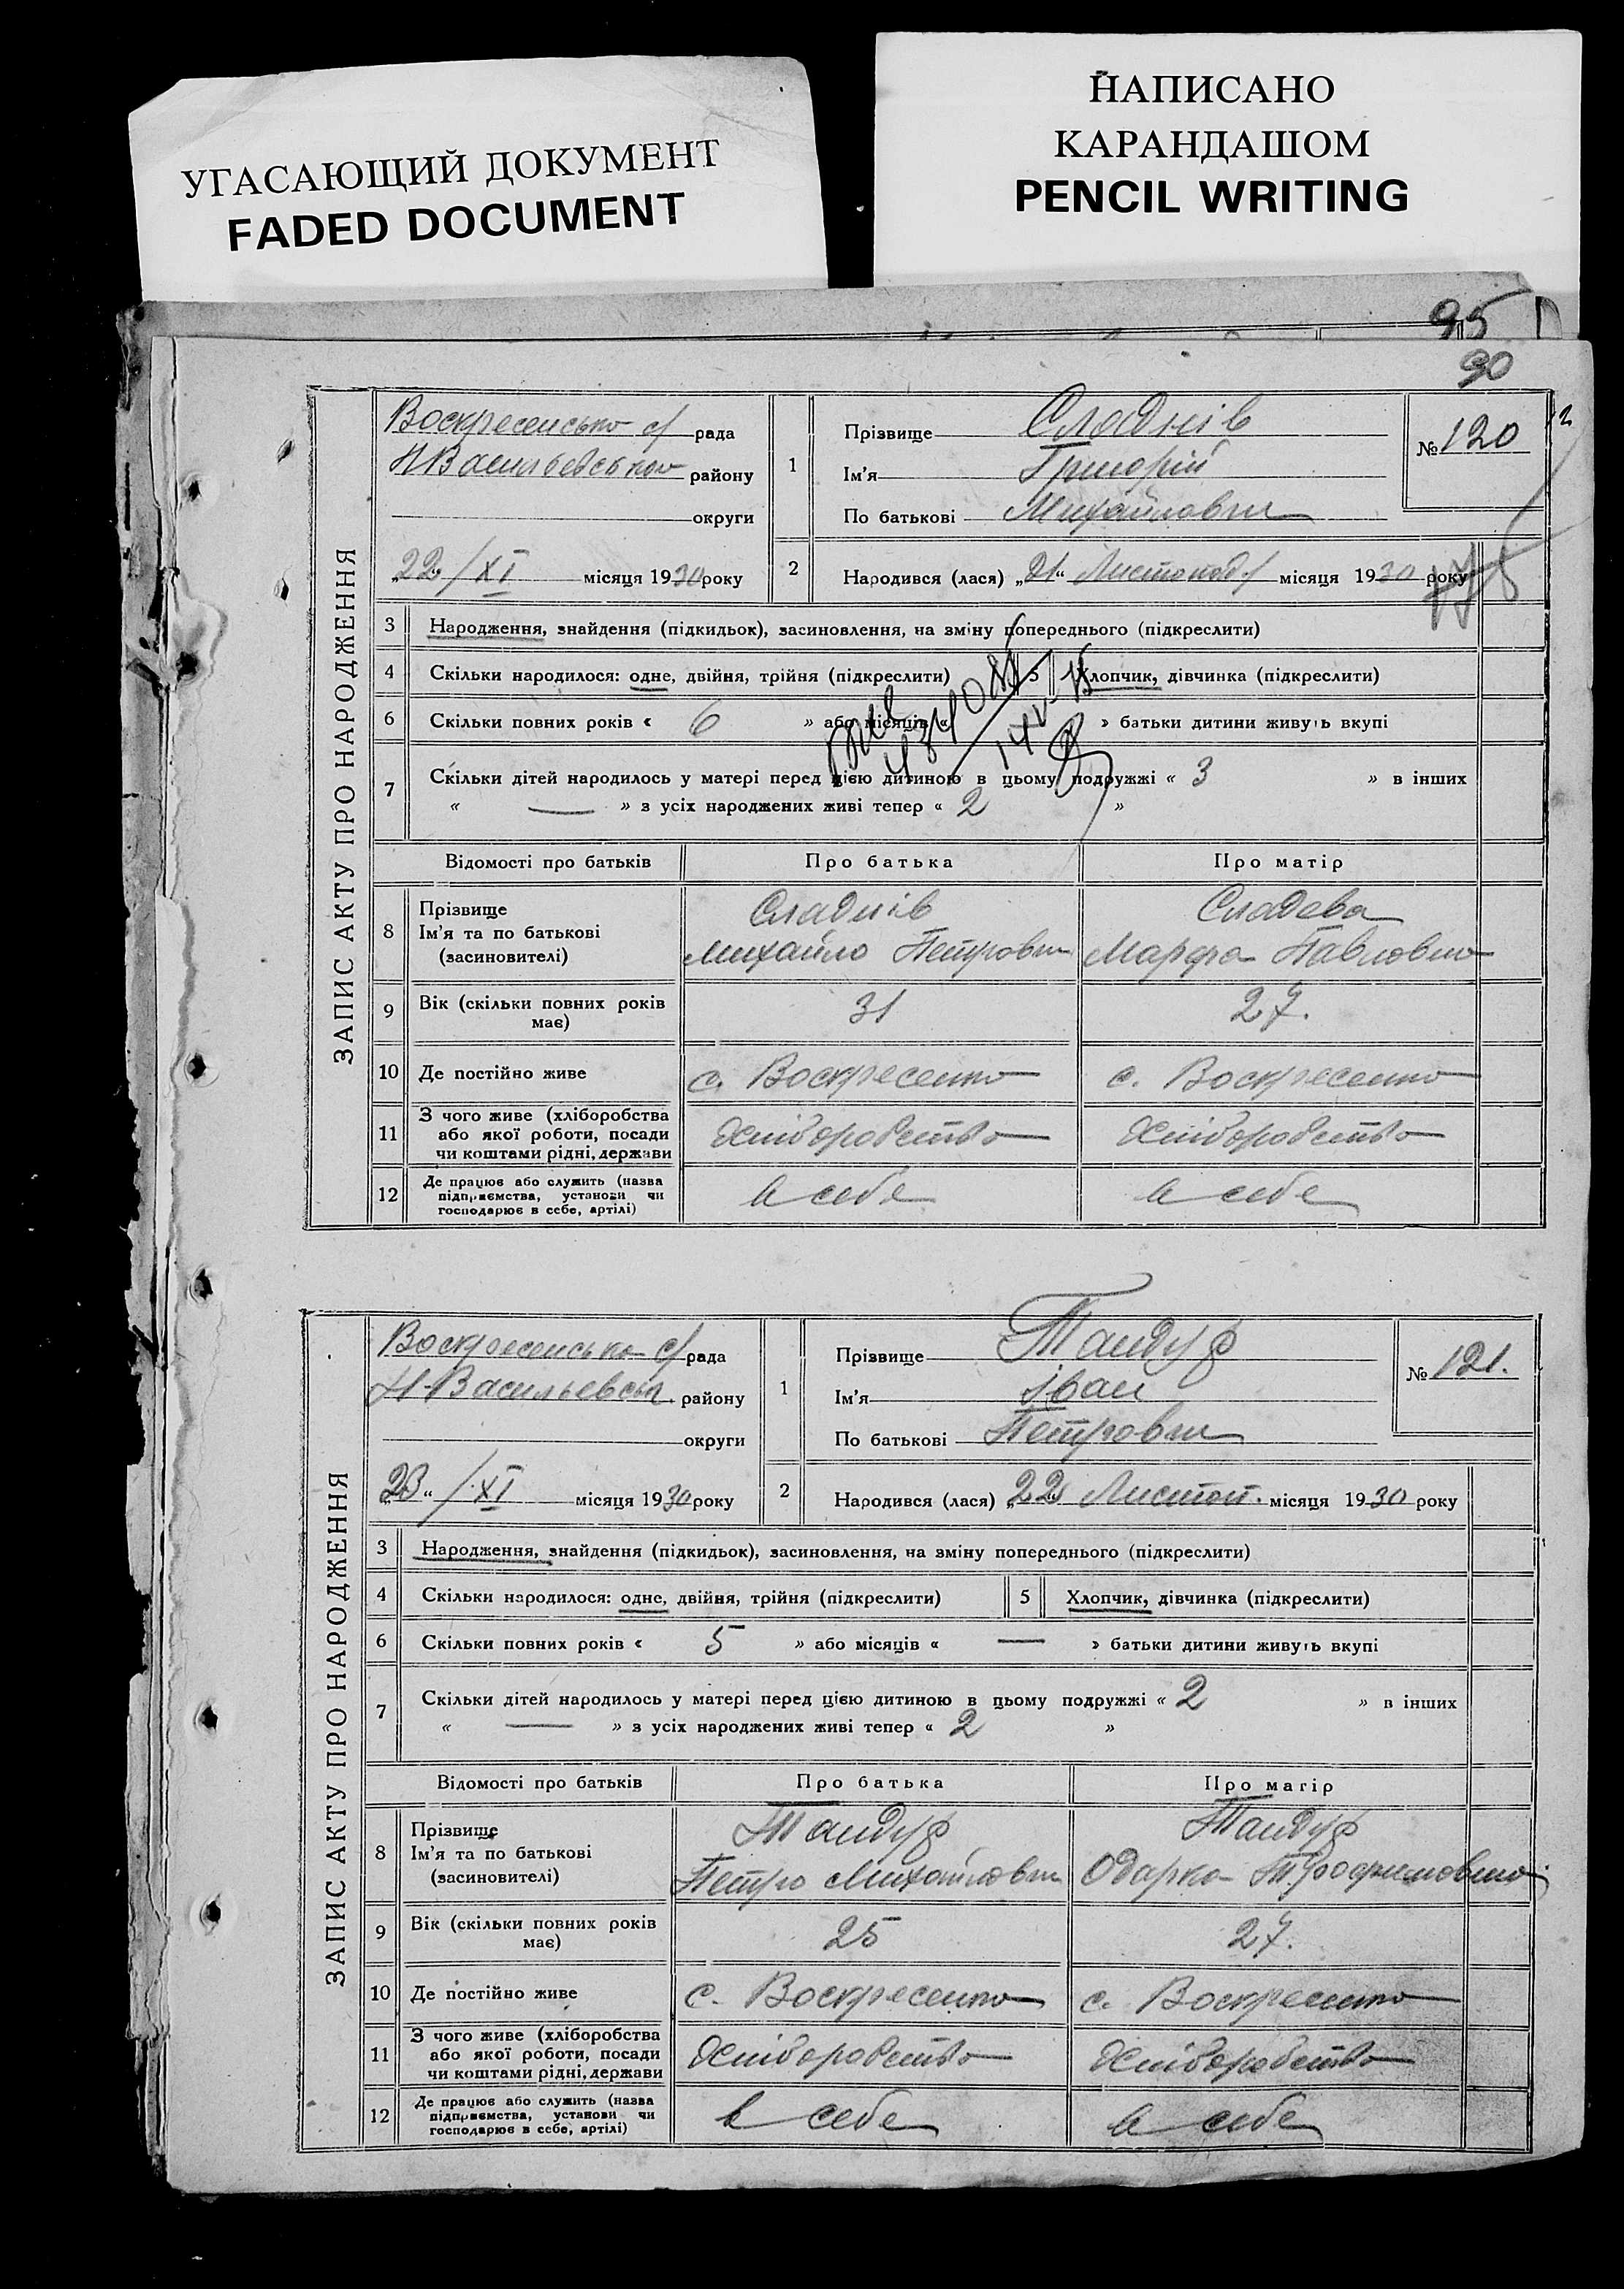 УГАСАЮЩИЙ ДОКУМЕНТ
FADED DOCUMENT
НАПИСАНО
КАРАНДАШОМ
PENCIL WRITING
95
90
ЗАПИС АКТУ ПРО НАРОДЖЕННЯ
Воскресенська с/ рада
Н Васильевськ району
округи
„22“ / XI місяця 1930 року
1
Прізвище Сладнів
Ім'я Григорій
По батькові Михайлович
№ 120
12
2
Народився (лася) „21“ Листопад/ місяця 1930 року
3 Народження, знайдення (підкидьок), засиновлення, на зміну попереднього (підкреслити)
4 Скільки народилося: одне, двійня, трійня (підкреслити) 5 Хлопчик, дівчинка (підкреслити)
6 Скільки повних років « 6 » або місяців « » батьки дитини живуть вкупі
7 Скільки дітей народилось у матері перед цією дитиною в цьому подружжі « 3 » в інших
« — » з усіх народжених живі тепер « 2 »
Відомості про батьків Про батька Про матір
8 Прізвище Сладнів Сладева
Ім'я та по батькові Михайло Петрович Марфа Павловна
(засиновителі)
9 Вік (скільки повних років має) 31 27.
10 Де постійно живе с. Воскресенка с. Воскресенка
11 З чого живе (хліборобства
або якої роботи, посади Хліборобство Хліборобство
чи коштами рідні, держави
12 Де працює або служить (назва
підприємства, установи чи в себе в себе
господарює в себе, артілі)
ЗАПИС АКТУ ПРО НАРОДЖЕННЯ
Воскресенська с/ рада
Н-Васильевськ. району
округи
„23“ / XI місяця 1930 року
1
Прізвище Тандуф
Ім'я Іван
По батькові Петрович
№ 121.
2
Народився (лася) „22“ Листоп. місяця 1930 року
3 Народження, знайдення (підкидьок), засиновлення, на зміну попереднього (підкреслити)
4 Скільки народилося: одне, двійня, трійня (підкреслити) 5 Хлопчик, дівчинка (підкреслити)
6 Скільки повних років « 5 » або місяців « — » батьки дитини живуть вкупі
7 Скільки дітей народилось у матері перед цією дитиною в цьому подружжі « 2 » в інших
« — » з усіх народжених живі тепер « 2 »
Відомості про батьків Про батька Про матір
8 Прізвище Тандуф Тандуф
Ім'я та по батькові Петро Михайлович Одарка
(засиновителі)
9 Вік (скільки повних років має) 25 27.
10 Де постійно живе с. Воскресенка с. Воскресенка
11 З чого живе (хліборобства
або якої роботи, посади Хліборобство Хліборобство
чи коштами рідні, держави
12 Де працює або служить (назва
підприємства, установи чи в себе в себе
господарює в себе, артілі)